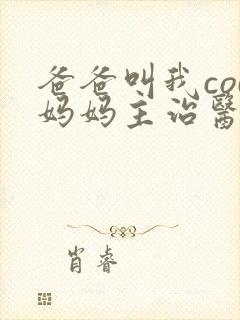 爸爸叫我co
妈妈主治醫
肖睿